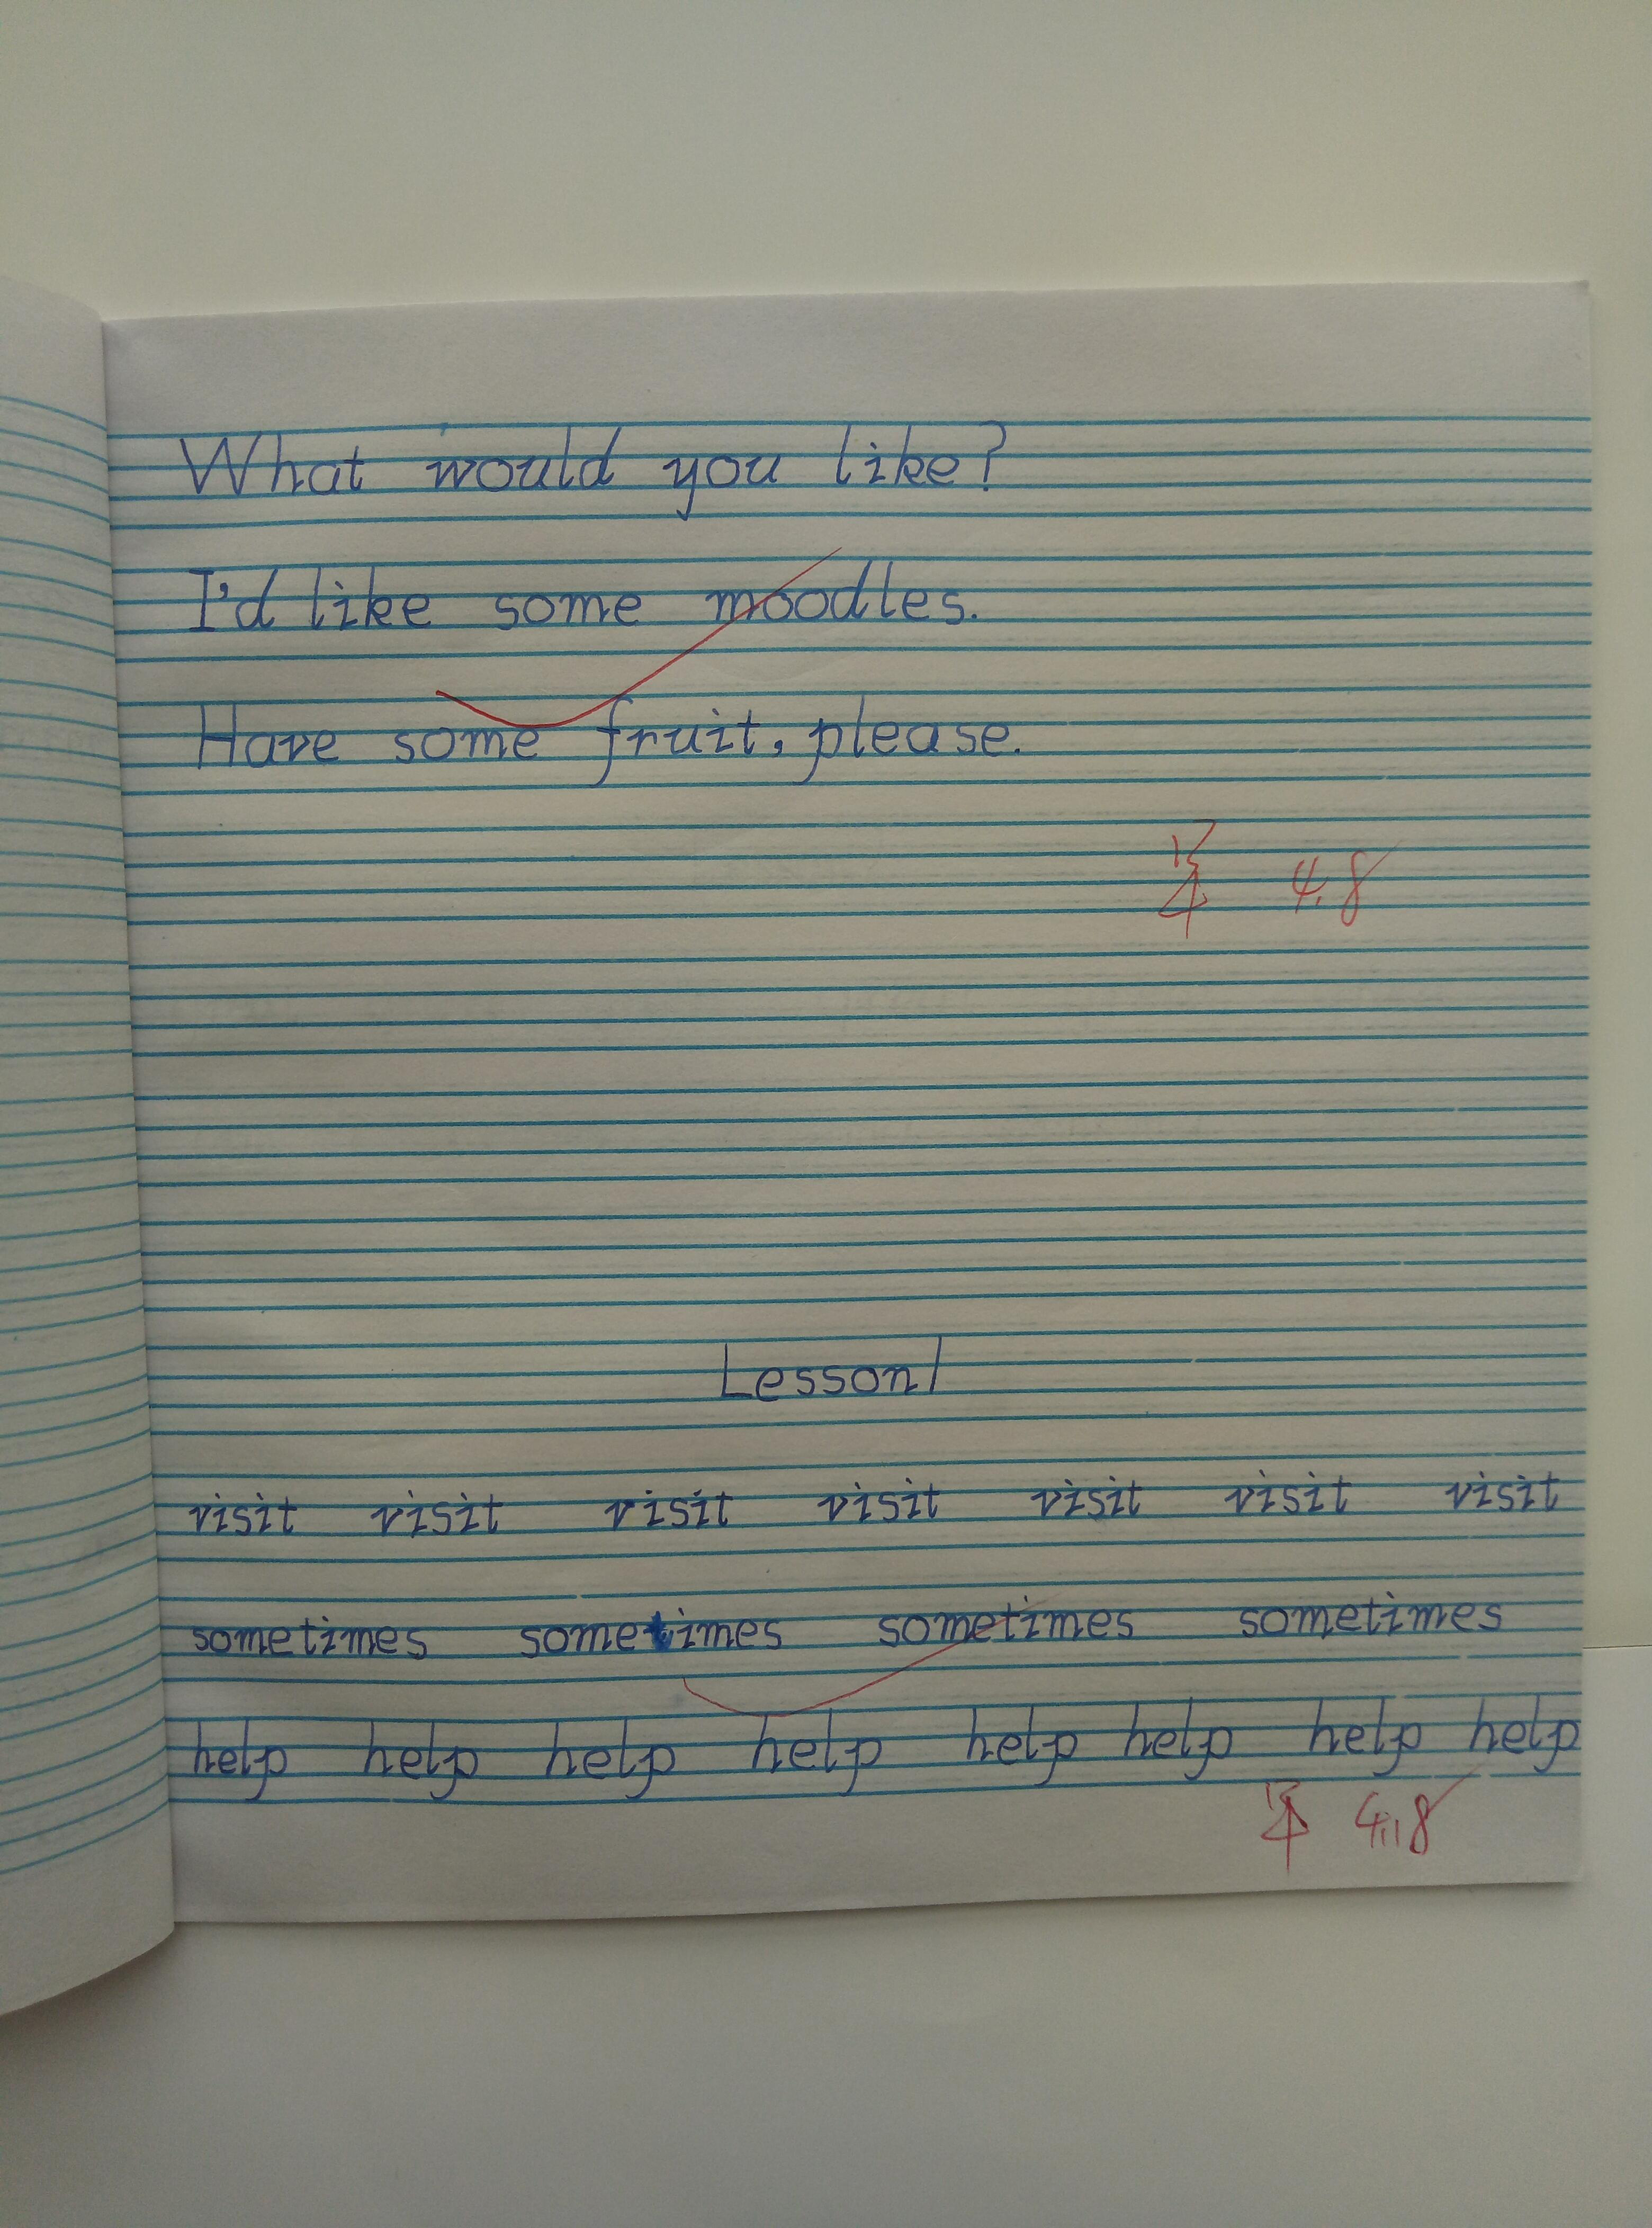 What would you like?
I'd like some moodles.
Have some fruit, please.
4.8
Lesson 1
visit visit visit visit visit visit visit
sometimes sometimes sometimes sometimes
help help help help help help help help
4.18